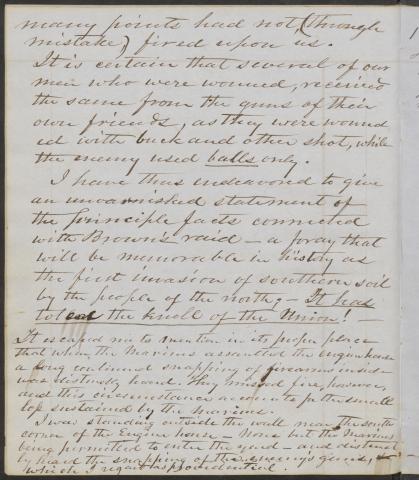 many points had not, (through
mistake) fired upon us.
It is certain that several of our
men who were wounded, received
the same from the guns of their
own friends, as they were wound
ed with buck and other shot, while
the enemy used balls only.
I have thus endeavored to give
an unvarnished statement of
the principle facts connected
with Brown's raid – a foray that
will be memorable in history as
the first invasion of southern soil
by the people of the north, – It has
the knell of the Union! –
It escaped me to mention in its proper place
that when the Marines assaulted the engine house
a long continued snapping of firearms inside
was distinctly heard. They missed fire, however,
and this circumstance accounts for the small
loss sustained by the Marines.
I was standing outside the wall near the south
corner of the engine house – None but the Marines
being permitted to enter the yard – and distinct
ly heard the snapping of the enemy's guns,
which I regard as providential.